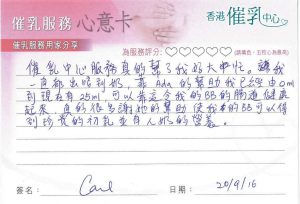 催乳服務 心意卡
香港催乳中心
催乳服務用家分享
為服務評分:♡♡♡♡♡
催乳中心服務真的幫了我好大的忙。讓我
一直都出唔到奶,靠Ada的幫助我已經由0ml
到現在有25ml,可以
我的BB的腸道健康
起來,真的很出謝她的幫助使我本BB可以得
到珍貴的初乳並有人奶的營養。
簽名: Carol
日期: 20/9/16